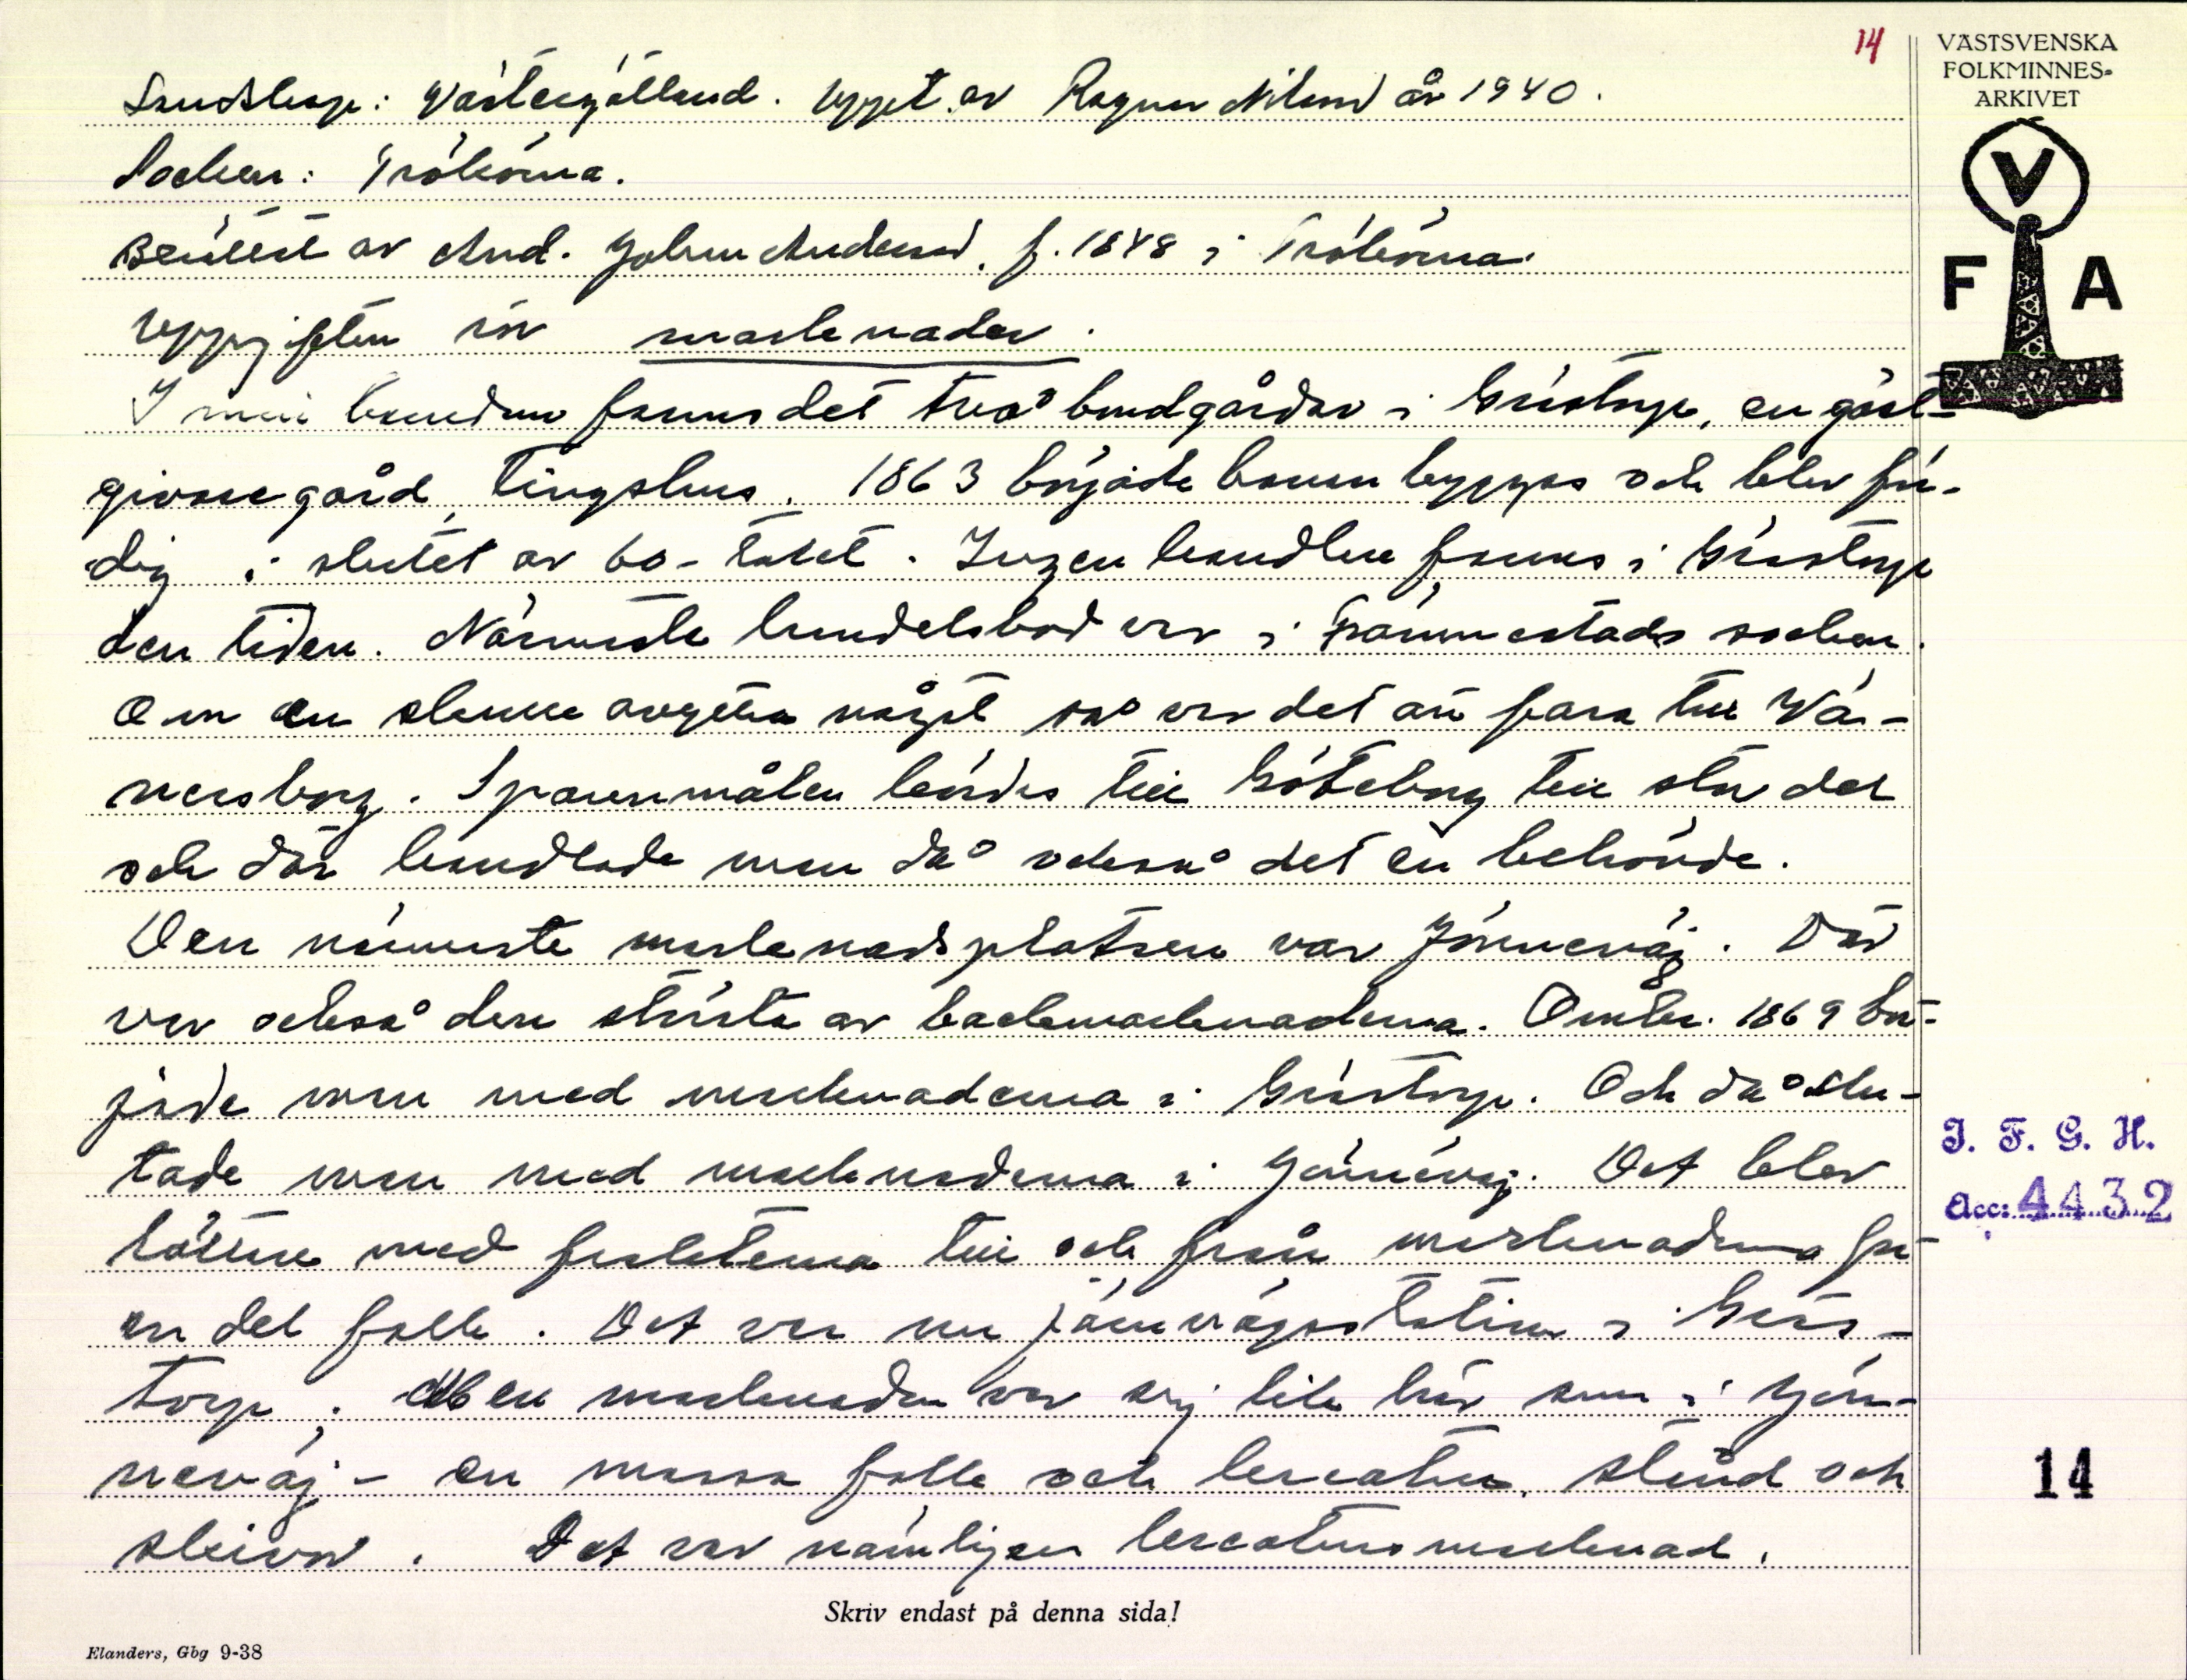 14
VÄSTSVENSKA
FOLKMINNES-
ARKIVET
V
F A
Landskap: Västergötland. Uppt. av Ragnar Nilsson år 1940.
Socken: Tråkörna.
Berättat av And. Johan Andersson, f. 1848 i Tråkörna.
Uppgiften rör marknader.
I min barndom fanns det två bondgårdar i Grästorp, en gäst-
givaregård, Tingshus. 1863 började banan byggas och blev fär-
dig i slutet av 60-talet. Ingen handlare fanns i Grästorp
den tiden. Närmaste handelsbod var i Främmestads socken.
Om en skulle avyttra något så var det att fara till Vä-
nersborg. Spannmålen kördes till Göteborg till stor del
och där handlade man då också det en behövde.
Den närmaste marknadsplatsen var Jönneväg. Där
var också den största av backamarknaderna. Omkr. 1869 bör-
jade man med marknaderna i Grästorp. Och då slu-
tade man med marknaderna i Jönneväg. Det blev
lättare med frakterna till och från marknaderna för
en del folk. Det var nu järnvägsstation i Gräs-
torp. Men marknaden var sig lik här som i Jön-
neväg - en massa folk och kreatur, stånd och
skivor. Det var nämligen kreatursmarknad.
I. F. G. H.
Acc: 4432
14
Skriv endast på denna sida!
Elanders, Gbg 9-38